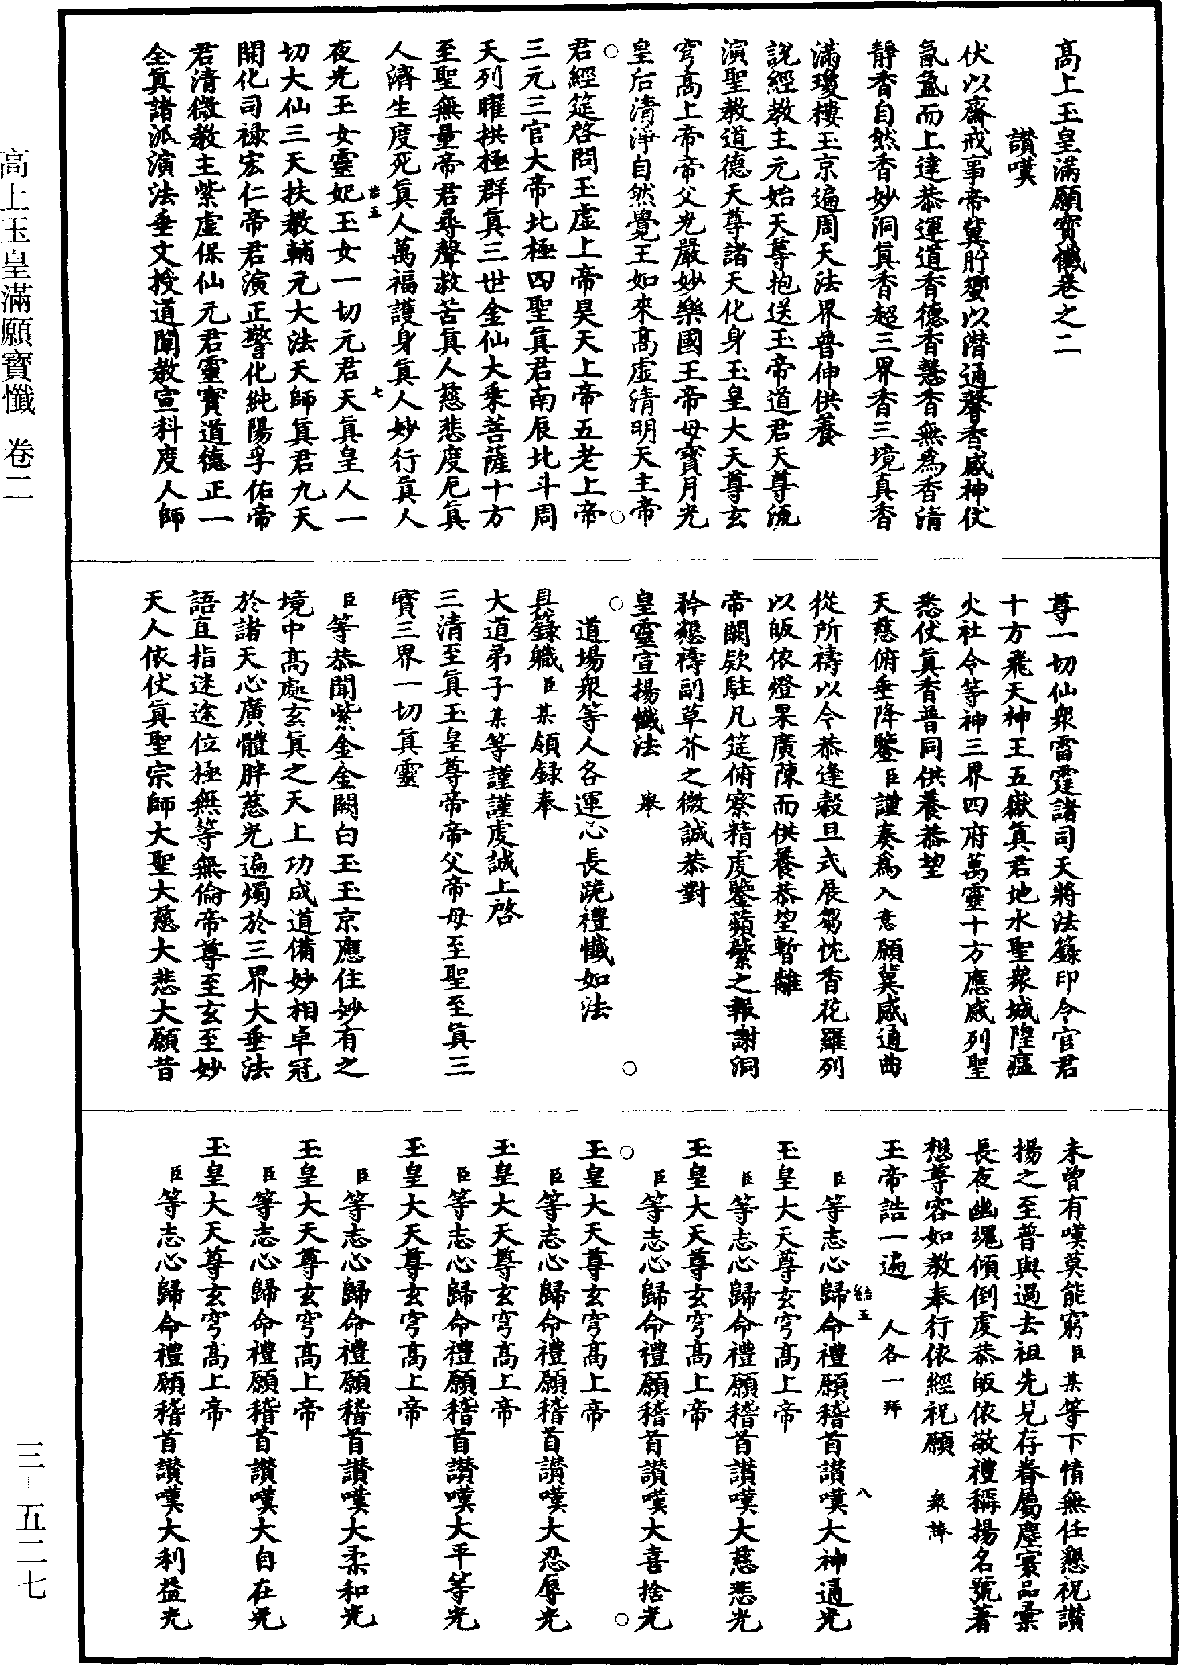 高上玉皇滿願寶懺卷之二
讚嘆
伏以齋戒事帝冀肸蠁以潛通馨香感神仗
氤氳而上達恭運道香德香慧香無為香清
靜香自然香妙洞真香超三界香三境真香
滿瓊樓玉京遍周天法界普伸供養
說經教主元始天尊抱送玉帝道君天尊流
演聖教道德天尊諸天化身玉皇大天尊玄
穹高上帝帝父光嚴妙樂國王帝母寶月光
皇后清淨自然覺王如來高虛清明天主帝
君經筵啓問玉虛上帝昊天上帝五老上帝
三元三官大帝北極四聖眞君南辰北斗周
天列曜拱極群眞三世金仙大乘菩薩十方
至聖無量帝君尋聲救苦眞人慈悲度厄眞
人濟生度死眞人萬福護身眞人妙行眞人
夜光玉女靈妃玉女一切元君天眞皇人一
切大仙三天扶教輔元大法天師眞君九天
開化司祿宏仁帝君演正警化純陽孚佑帝
君清微教主紫虛保仙元君靈寶道德正一
全眞諸派演法垂文授道闡教宣科度人師
尊一切仙衆雷霆諸司天將法籙印令官君
十方飛天神王五嶽眞君地水聖衆城隍瘟
火社令等神三界四府萬靈十方應感列聖
悉仗眞香普同供養恭望
天慈俯垂降鑒臣謹奏爲入意願冀感通曲
從所禱以今恭逢穀旦式展芻忱香花羅列
以皈依燈果廣陳而供養恭望暫離
帝闕欵駐凡筵俯察精虔鑒蘋蘩之報謝洞
矜懇禱副草芥之微誠恭對
皇靈宣揚懺法 舉
道場衆等人各運心長跪禮懺如法
具籙職臣某領録奉
大道弟子某等謹謹虔誠上啓
三清至眞玉皇尊帝帝父帝母至聖至眞三
寳三界一切眞靈
臣等恭聞紫金金闕白玉玉京應住妙有之
境中高處玄眞之天上功成道備妙相卓冠
於諸天心廣體胖慈光遍燭於三界大垂法
語直指迷途位極無等無倫帝尊至玄至妙
天人依仗眞聖宗師大聖大慈大悲大願昔
未曾有嘆莫能窮臣某等下情無任懇祝讚
揚之至普與過去祖先見存眷屬塵寰品彙
長夜幽魂傾倒虔恭皈依敬禮稱揚名號著
想尊容如教奉行依經祝願 衆諱
玉帝誥一遍 人各一拜
臣等志心歸命禮願稽首讚嘆大神通光
玉皇大天尊玄穹高上帝
臣等志心歸命禮願稽首讚嘆大慈悲光
玉皇大天尊玄穹高上帝
臣等志心歸命禮願稽首讚嘆大喜捨光
玉皇大天尊玄穹高上帝
臣等志心歸命禮願稽首讚嘆大忍辱光
玉皇大天尊玄穹高上帝
臣等志心歸命禮願稽首讚嘆大平等光
玉皇大天尊玄穹高上帝
臣等志心歸命禮願稽首讚嘆大柔和光
玉皇大天尊玄穹高上帝
臣等志心歸命禮願稽首讚嘆大自在光
玉皇大天尊玄穹高上帝
臣等志心歸命禮願稽首讚嘆大利益光
高上玉皇滿願寶懺 卷二
三-五二七